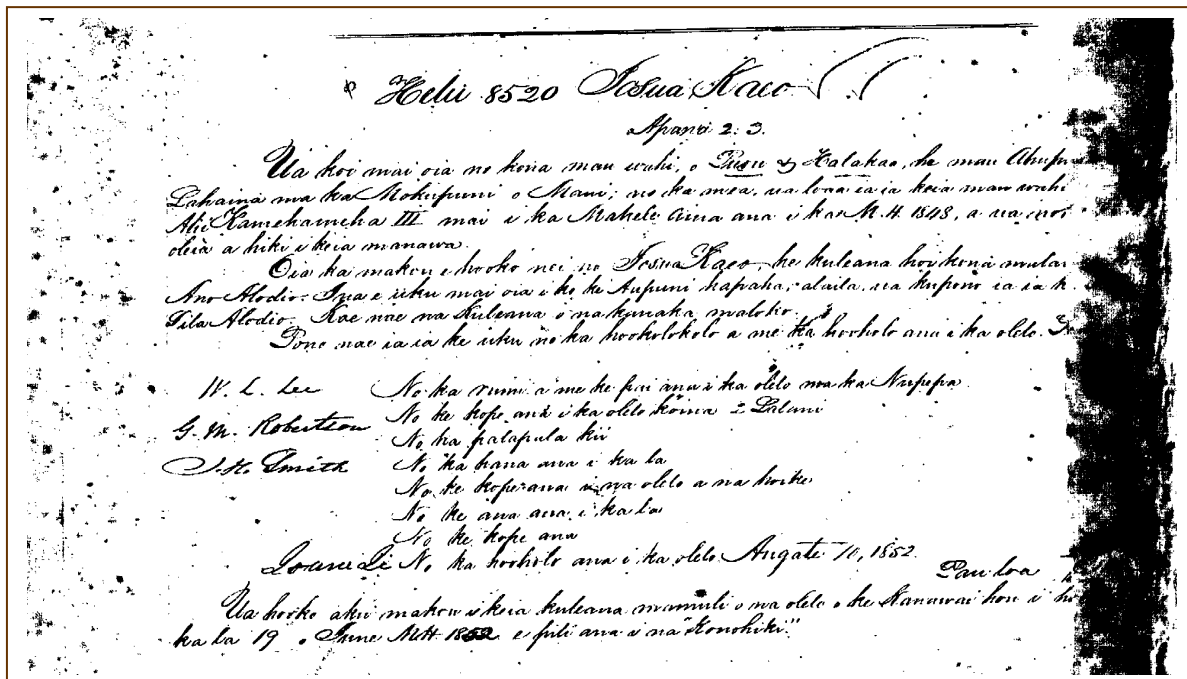 Helu 8520 Iosua Kaeo
Apana 2. 3.
Ua koi mai oia no kona mau wahi, o Puou & Halakaa, he mau Ahup
Lahaina ma ka Mokupuni o Maui; no ka mea, ua loaa ia ia keia mau wahi
Alii Kamehameha III mai i ka Mahele Aina ana i ka M.H. 1848, a ua noho
oleia a hiki i keia manawa.
Oia ka makou e hooko nei no Iosua Kaeo, he kuleana hookona malal
Ano Alodio. Ina e uku mai oia i ko ke Aupuni hapaha, alaila, ua kupono ia ia k
Sila Alodio. Koe nae na Kuleana o na kanaka maloko.
Pono nae ia ia ke uku no ka hookolokolo a me ka hooholo ana i ka olelo.
W. L. Lee No ka rumi a me ke pai ana i ka olelo ma ka Nupepa
No ke kope ana i ka olelo koina 2 Lalani
G. M. Robertson
No ka palapala kii
J. H. Smith No ka hana ana i ka la
No ke kope ana i na olelo a na hoike
No ke ana ana i ka la
No ke kope ana
Ioane Ii No ka hooholo ana i ka olelo Augate 10, 1852.
Pau loa
Ua hooko aku makou i keia kuleana mamuli o na olelo o ke Kanawai hou i
ka la 19 o June M.H. 1852 e pili ana i na "Konohiki".